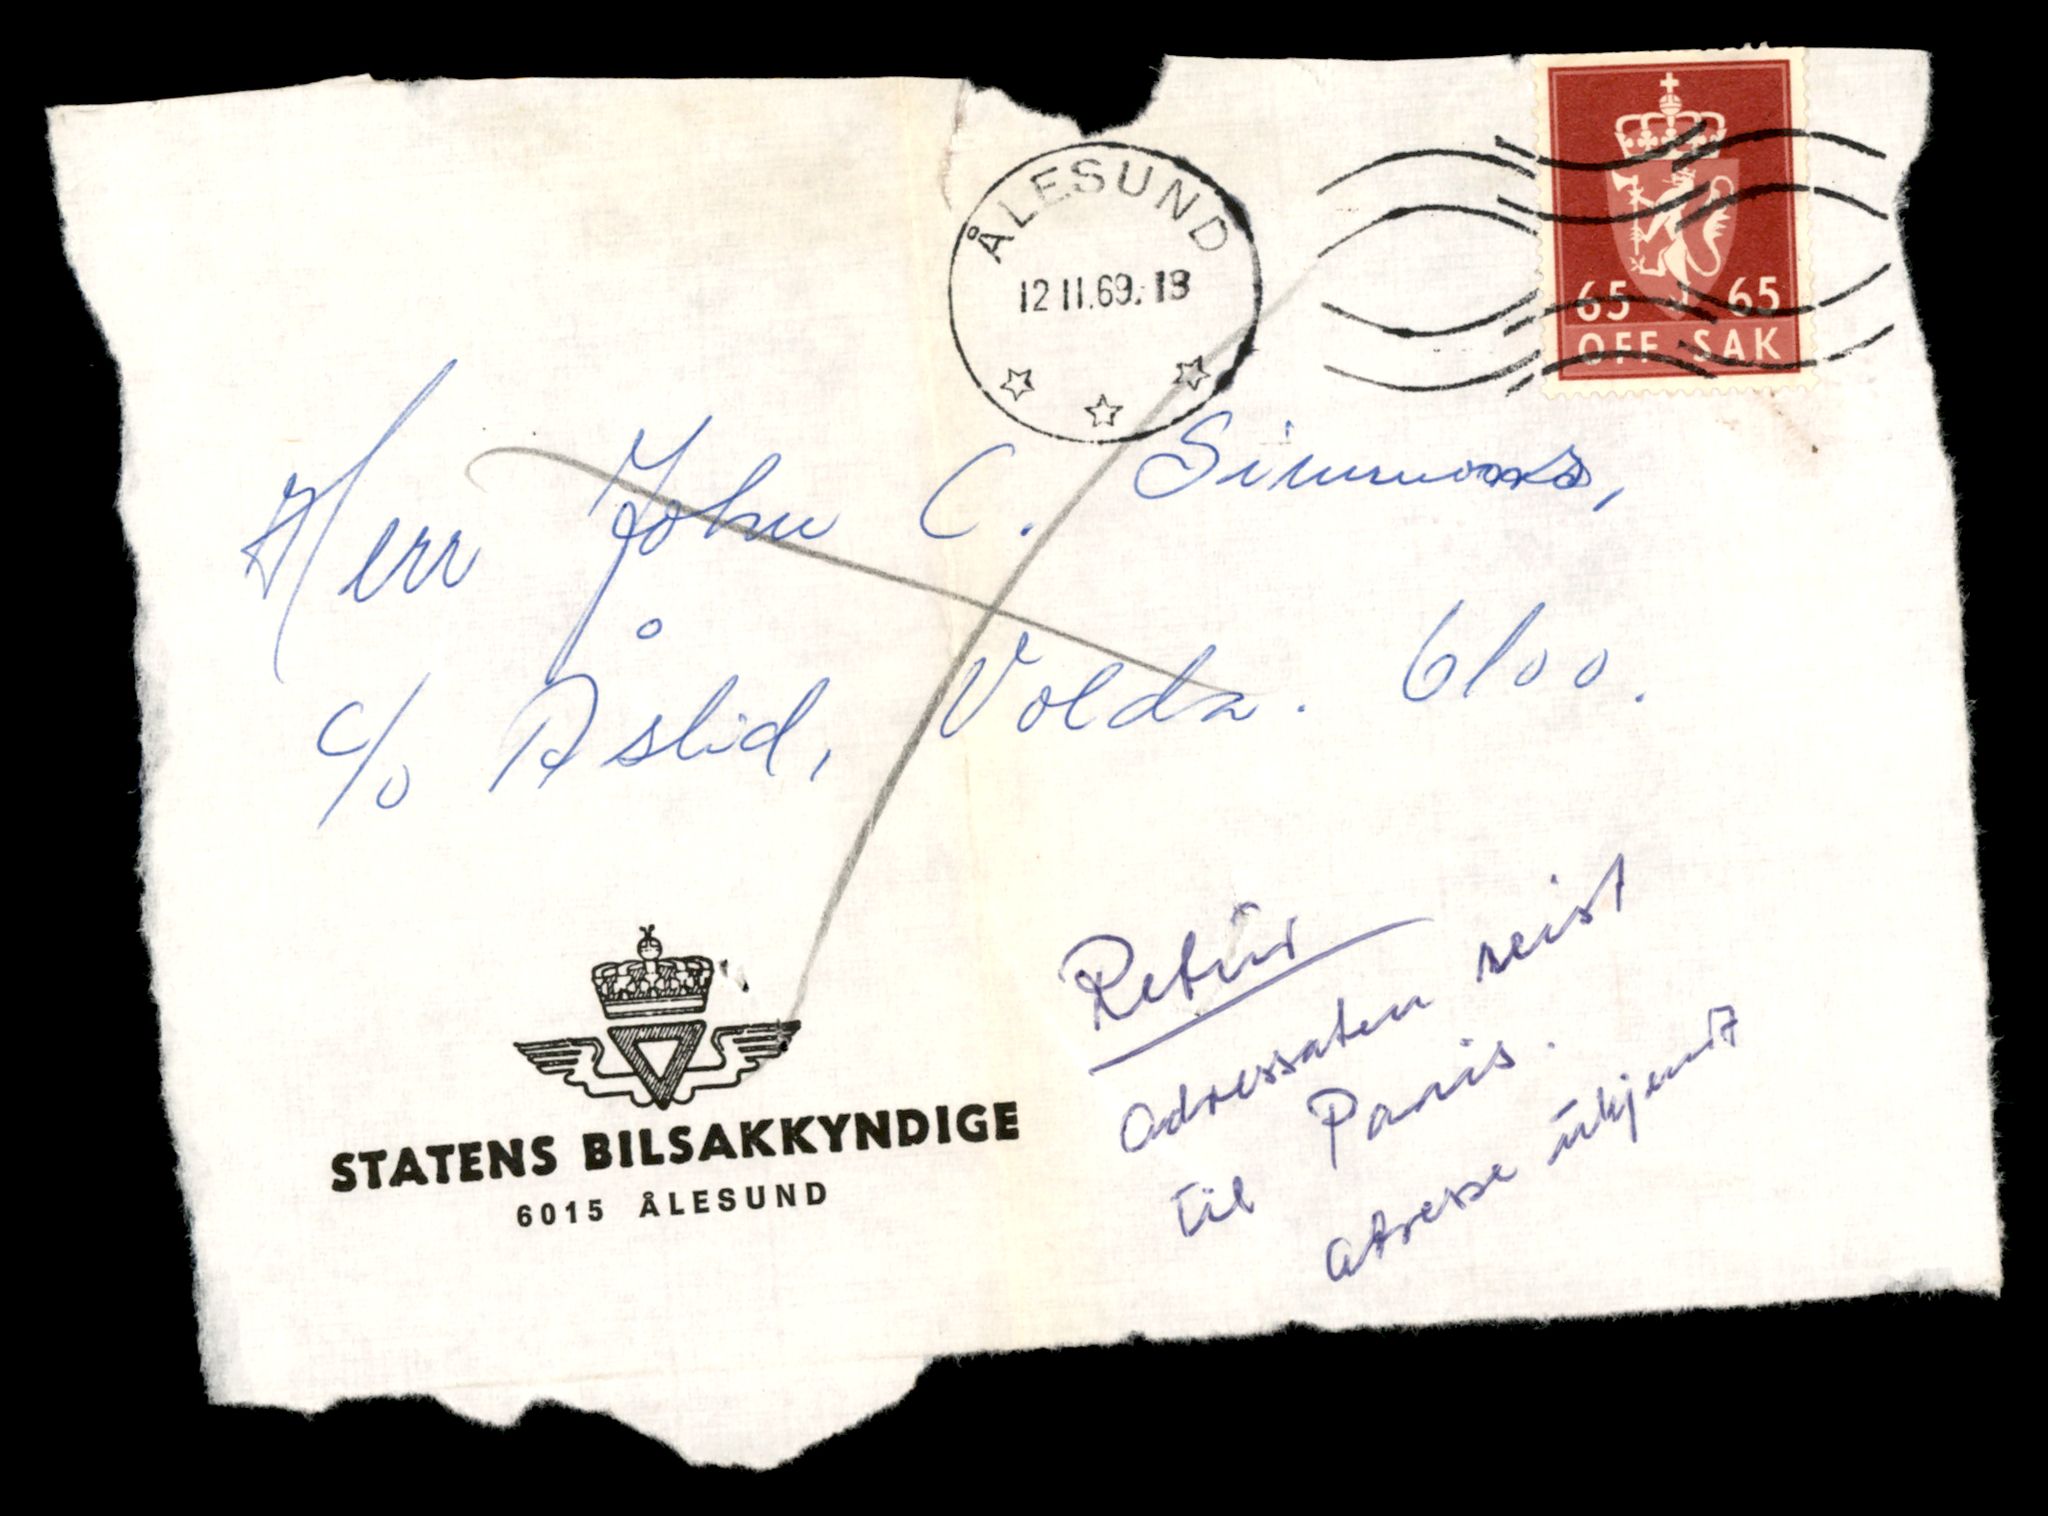 ÅLESUND
12 11.69.-13
65 65
OFF. SAK
Herr John C. Simmons,
c/o Åslid, Volda. 6100.
STATENS BILSAKKYNDIGE
6015 ÅLESUND
Retur
adressaten reist
til Paris.
adresse ukjendt